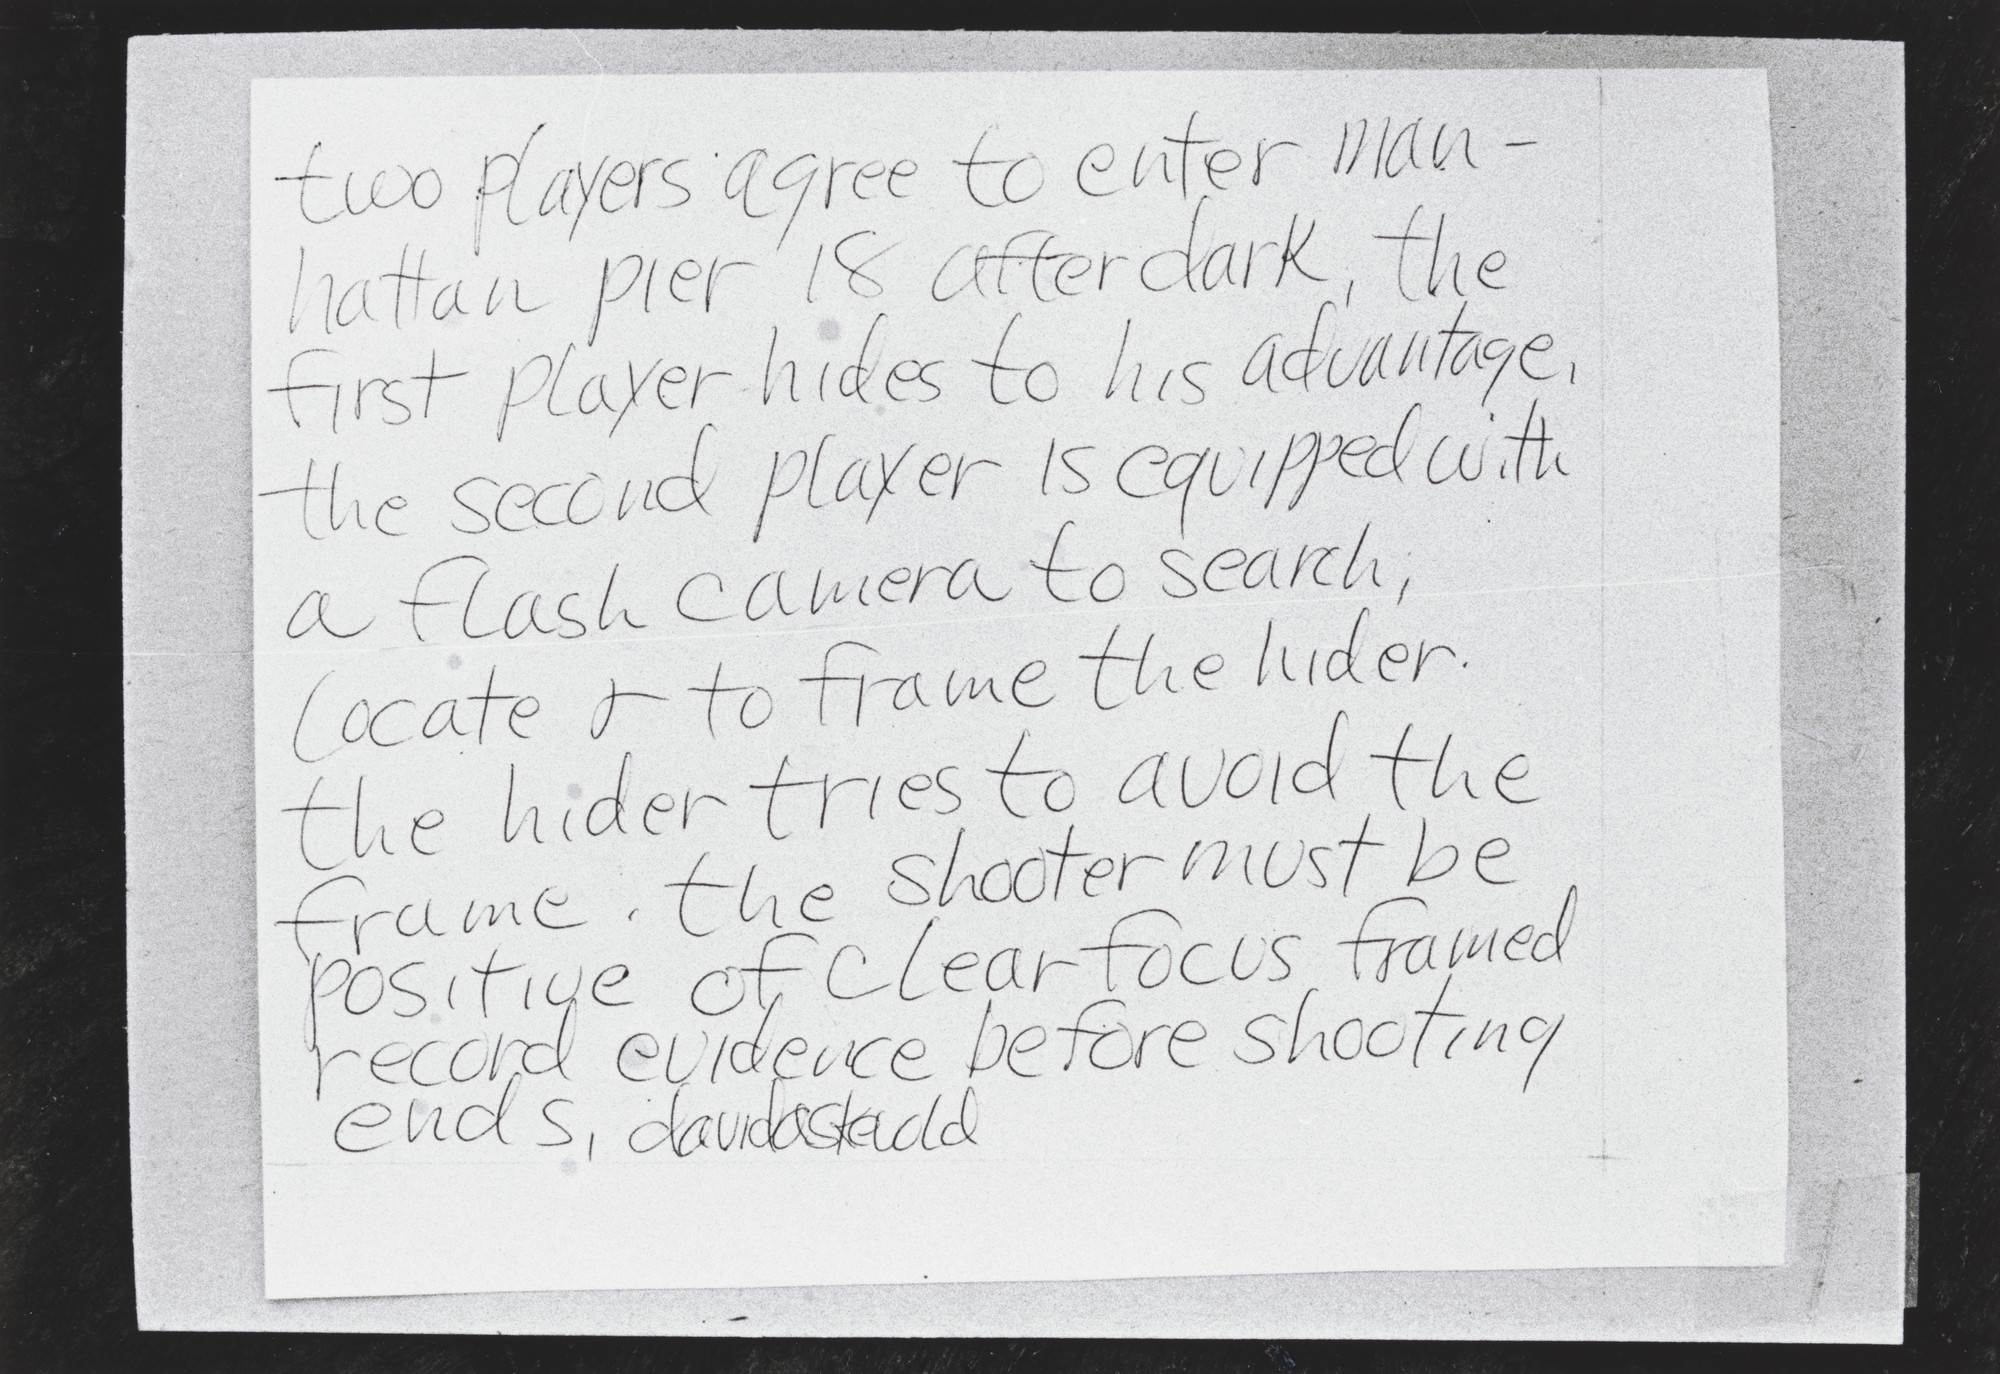 two players agree to enter man-
hattan pier 18 after dark, the
first player hides to his advantage.
the second player is equipped with
a flash camera to search,
locate & to frame the hider.
the hider tries to avoid the
frame. the shooter must be
positive of clear focus framed
record evidence before shooting
ends, davidaskevold